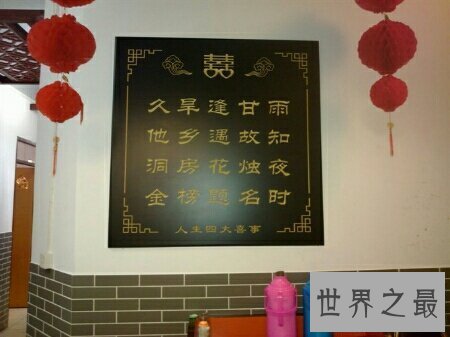 囍
久旱逢甘雨
他乡遇故知
洞房花烛夜
金榜题名时
人生四大喜事
世界之最